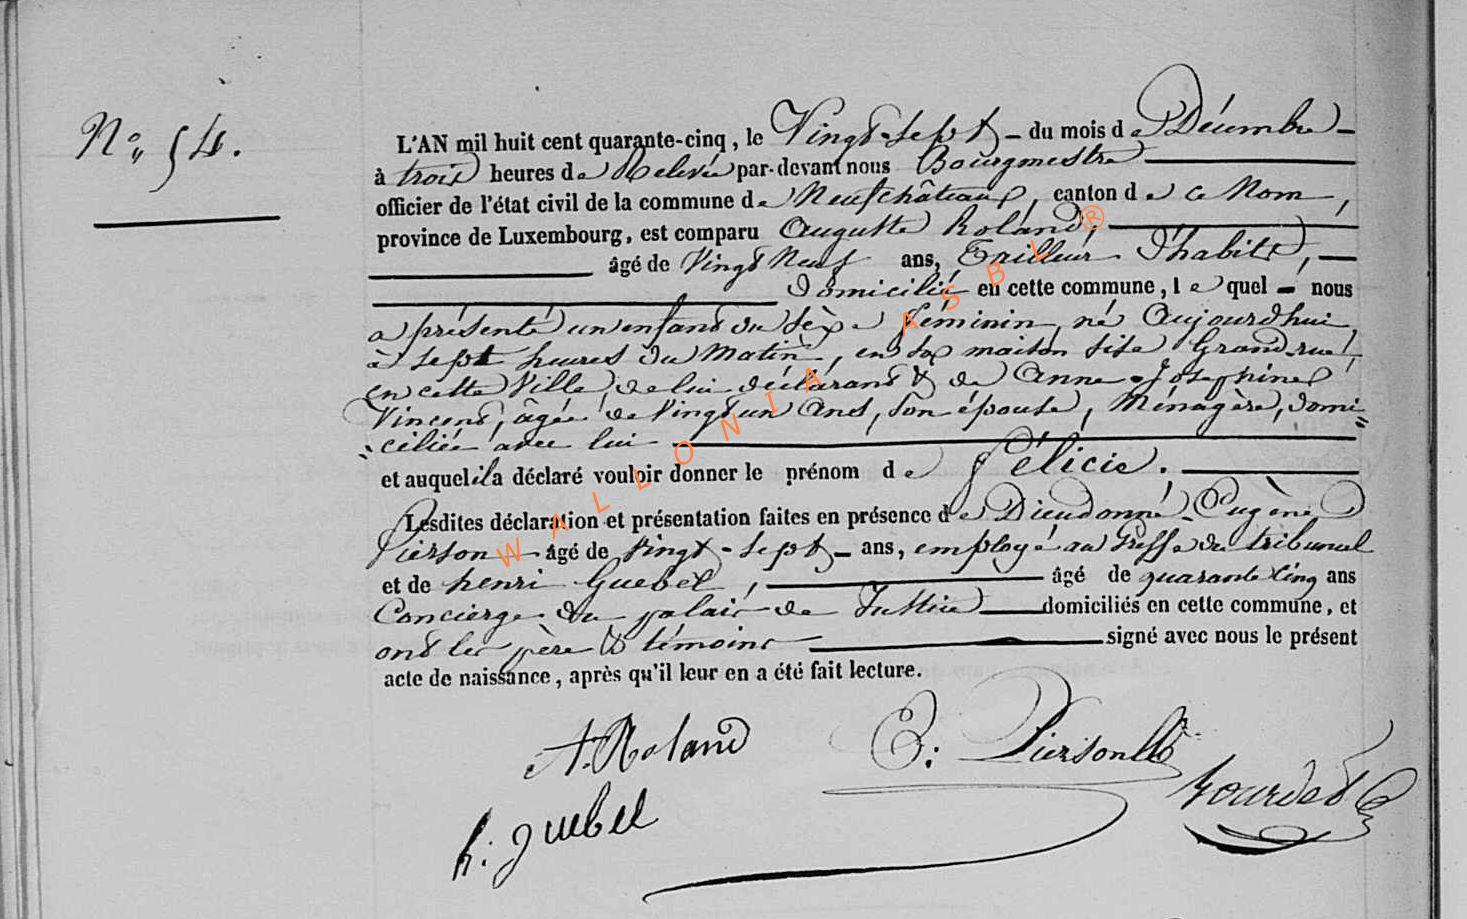 N° 54.
L'AN mil huit cent quarante-cinq, le Vingt-sept – du mois de Décembre –
à trois heures de Relevée par-devant nous Bourgmestre
officier de l'état civil de la commune de Neufchâteau, canton de ce Nom,
province de Luxembourg, est comparu Auguste Roland,
âgé de Vingt Neuf ans, Tailleur D'habits,
Domicilié en cette commune, lequel – nous
a présenté un enfant du sèxe féminin, né Aujourdhui,
à sept heures du Matin, en sa maison sise Grand-rue,
en cette Ville, de lui déclarant & de Anne-Josephine
Vincent, âgée de Vingt un Ans, son épouse, Ménagère, domi
ciliée avec lui
et auquel il a déclaré vouloir donner le prénom de Félicie.
Lesdites déclaration et présentation faites en présence de Dieudonné-Eugène
Pierson – âgé de Vingt-sept – ans, employé au Greffe du tribunal
et de henri Guebel, âgé de quarante cinq ans
Concierge du palais de Justice domiciliés en cette commune, et
ont les père & témoins signé avec nous le présent
acte de naissance, après qu'il leur en a été fait lecture.
A. Roland
E: Pierson
h: guebel
Bourdet
WALLONIA ASBL ®